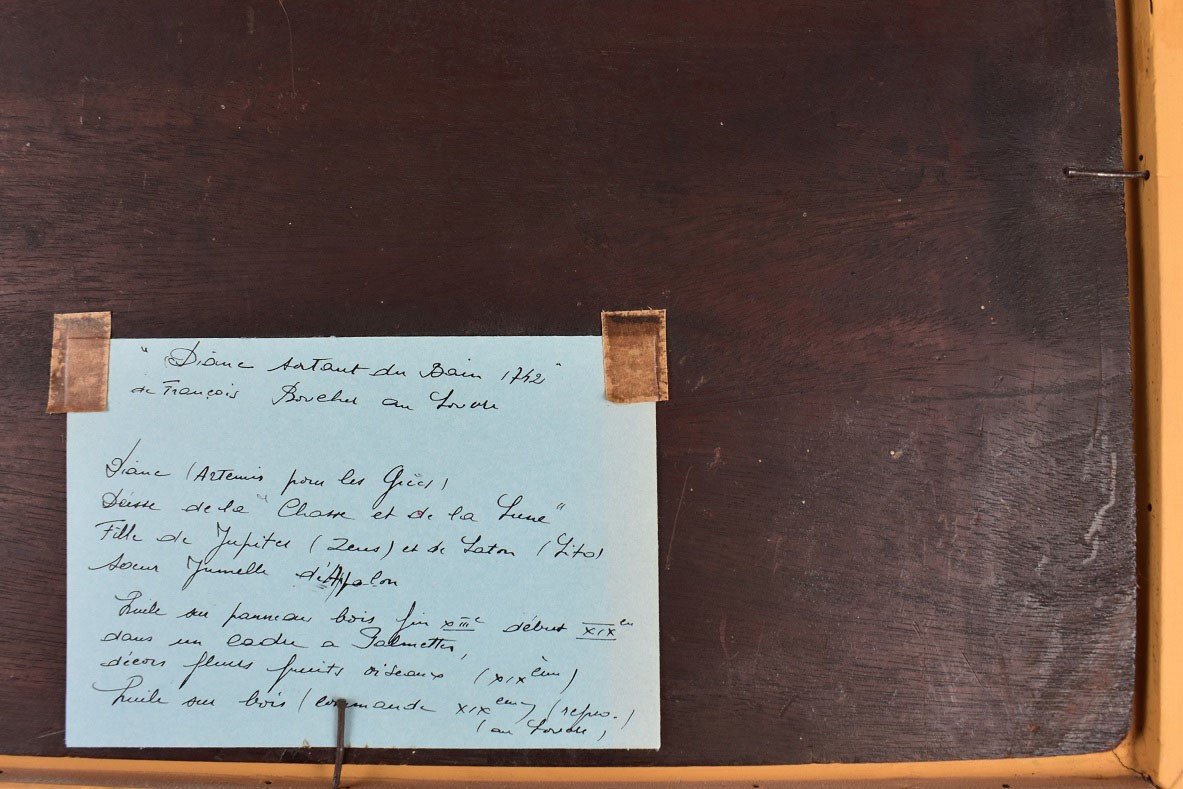 "Diane sortant du Bain 1742"
de François Boucher au Louvre
Diane (Artemis pour les Grecs)
Déesse de la "Chasse et de la Lune"
Fille de Jupiter (Zeus) et de Laton (Lito)
soeur Jumelle d'Appolon
huile sur panneau bois fin XVIIIe début XIXem
dans un cadre a Palmettes,
décors fleurs fruits oiseaux (XIXèm)
huile sur bois (commande XIXem) (repro.)
(au Louvre)